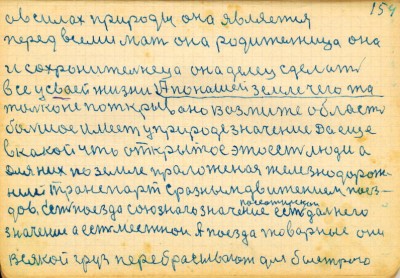 154
овсилах природы она является
перед всеми мат она родитеница она
и сохронителнеца она делец сделат
все у сваей жизни. А по нашей земле чего та
толко не поткривано возмите област
болшое имеет у природе значение Да еще
в какой чть открытое это ест люди а
для них по земле проложеная железнодорож-
ние транспарт с разным движением поез-
дов. ест поезда союзнаго значение ест далнего
пасажирских
значение а ест местнои. А поезда товарные они
всякой груз перебрасывают для быстрого